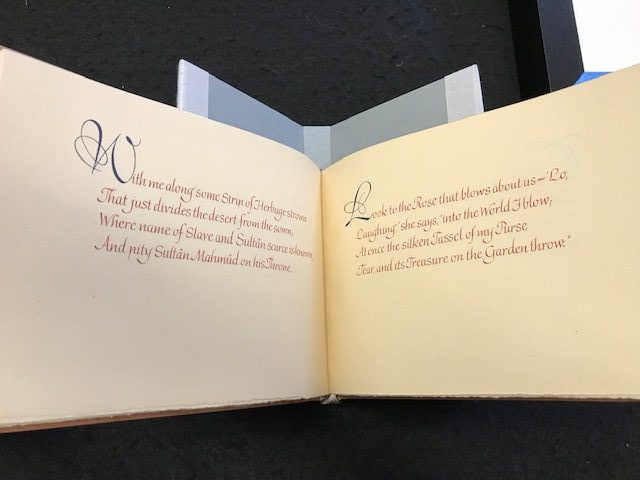 With me along some Strip of Herbage strown
That just divides the desert from the sown,
Where name of Slave and Sultân scarce is known,
And pity Sultân Mahmúd on his Throne.
Look to the Rose that blows about us—"Lo,
Laughing" she says, "into the World I blow;
At once the silken Tassel of my Purse
Tear, and its Treasure on the Garden throw."